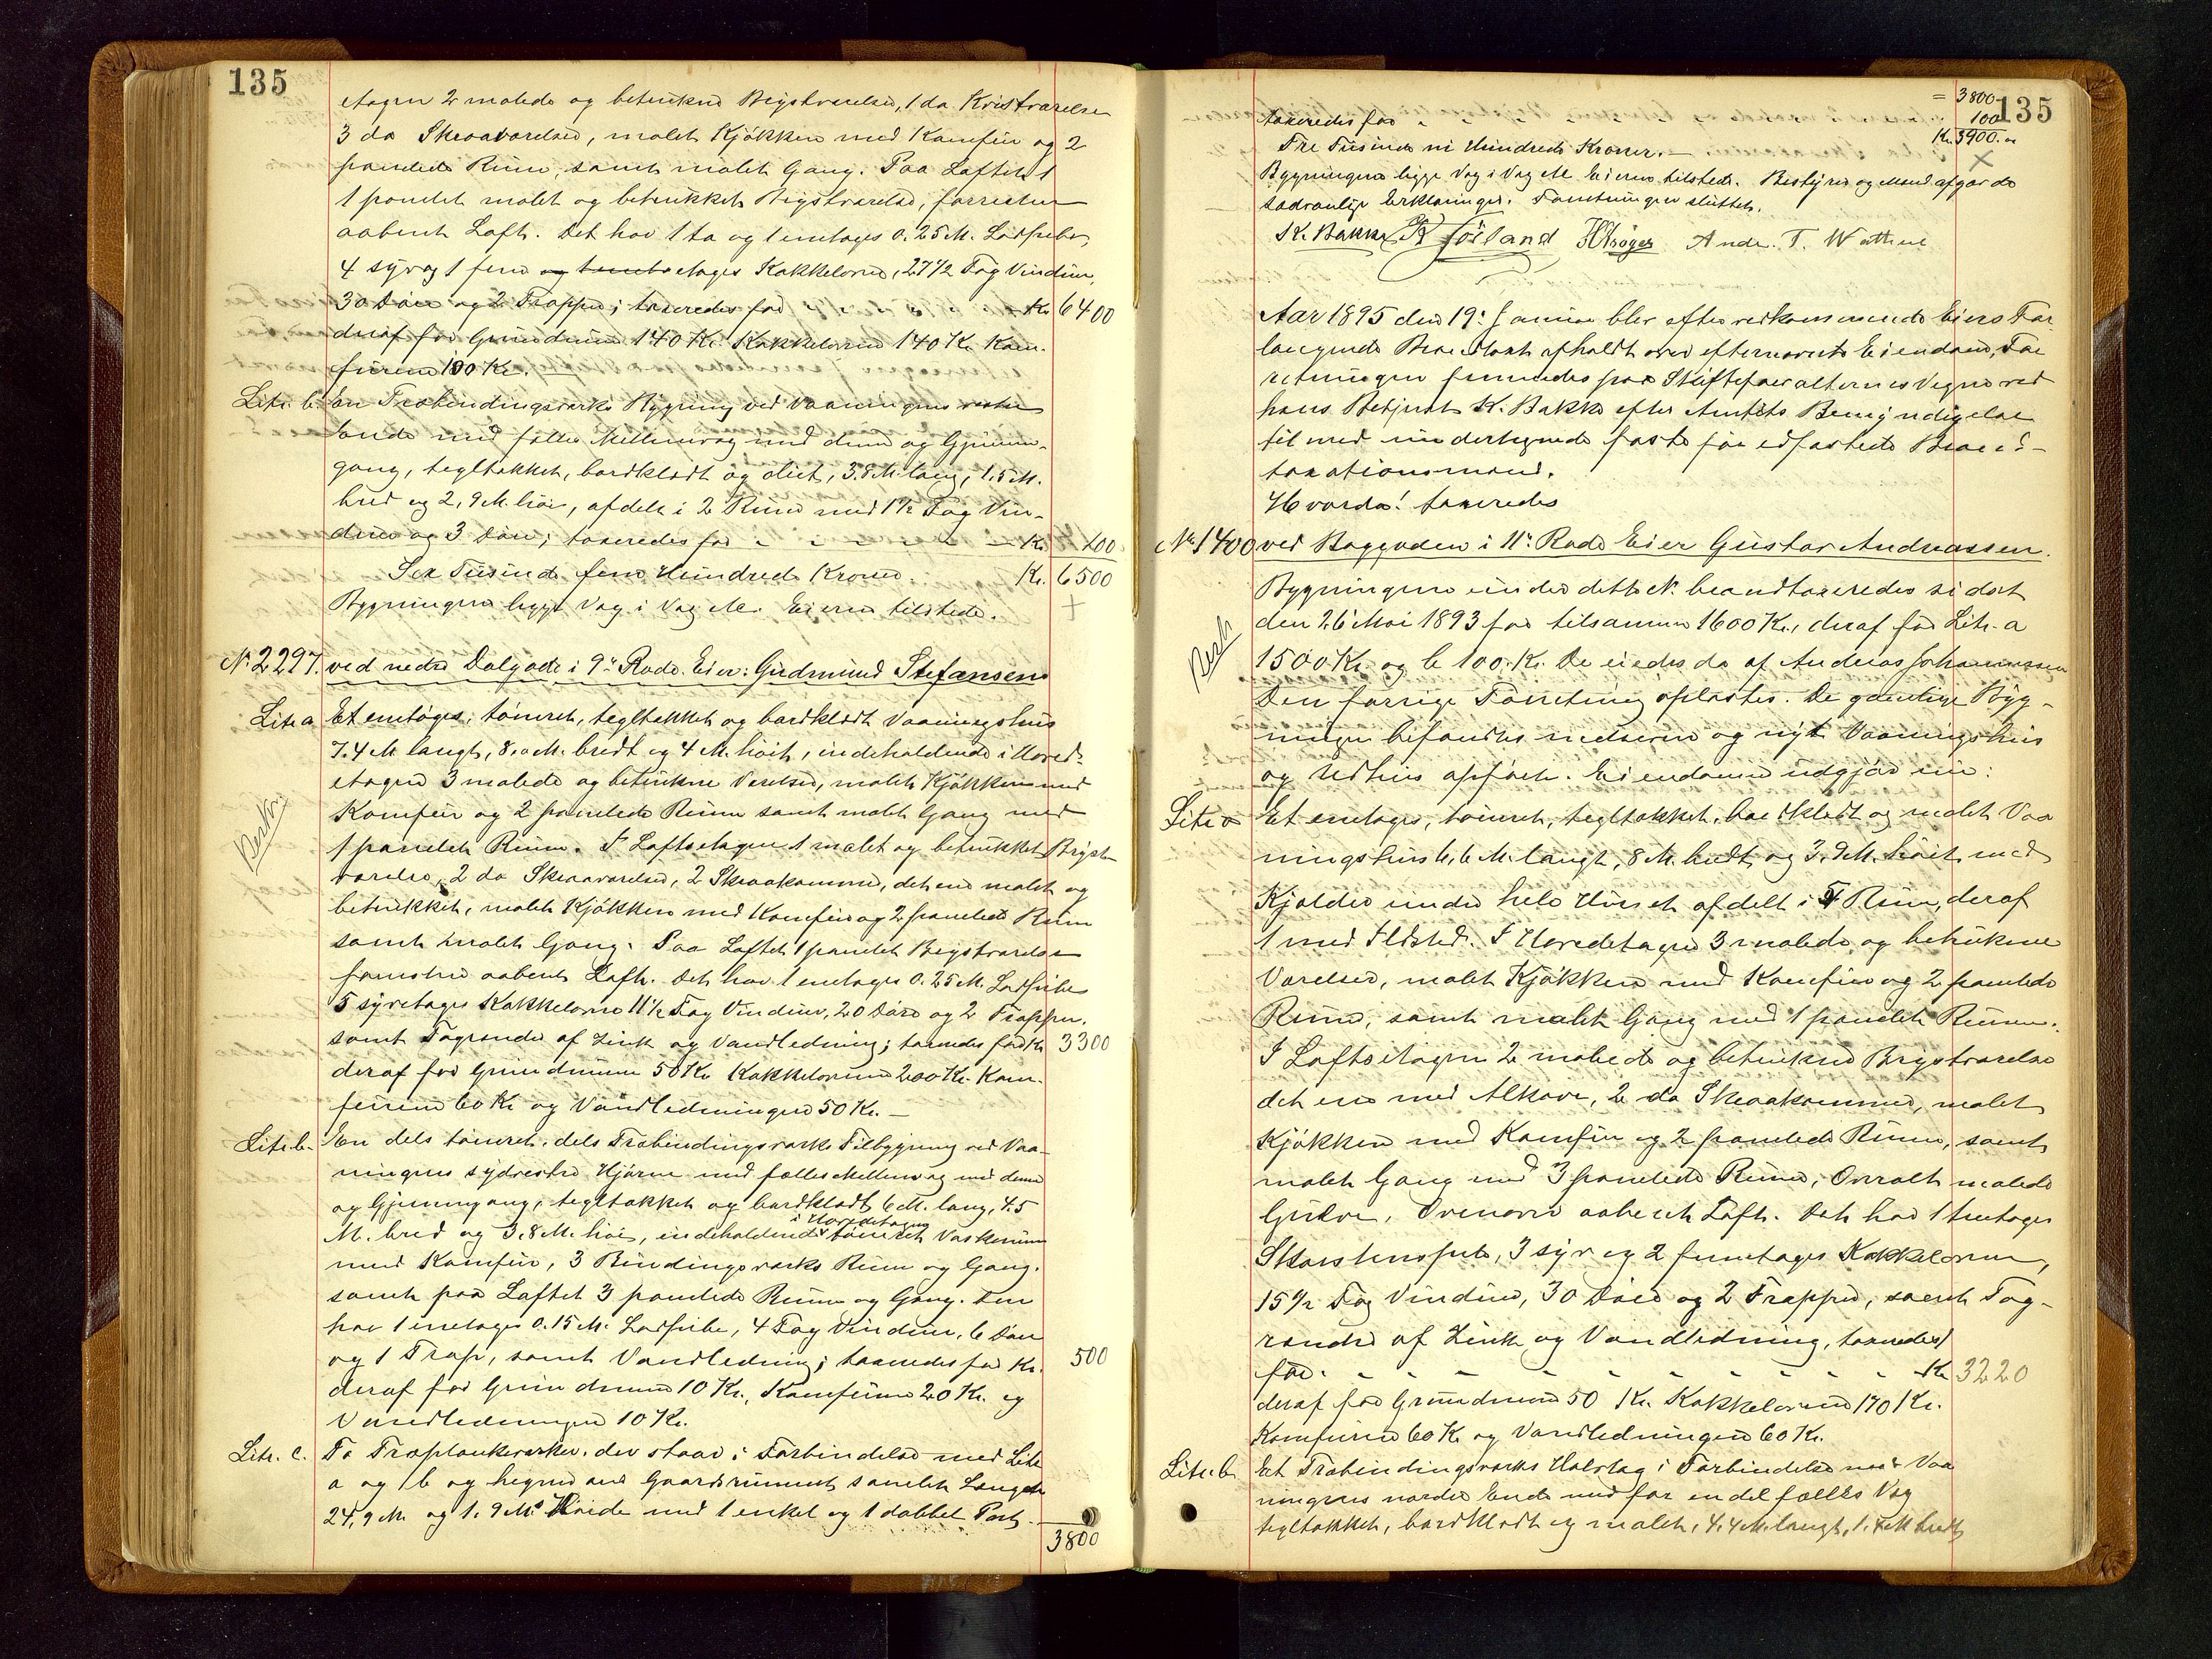 135
etagen 2 malede og betrukne Brystværelser, 1 do Kvistværelse
3 do Skraaværelser, malet Kjøkken med Komfur og 2
panelede Rum, samt malet Gang. Paa Loftet 1
1 panelet malet og betrukket Brystværelse, forresten
aabent Loft. Det har 1 to og 1 enetages 0.25 M. Lodpibe,
4 syv og 1 fem etages Kakkelovne, 27 1/2 Fag Vinduer,
30 Døre og 2 Trapper; taxeredes for Kr 6400
deraf for Grundmuren 140 Kr. Kakkelovnene 140 Kr. Kom-
furene 100 Kr.
Litr. b. En Træbindingsværks Bygning ved Vaaningens
Ende med fælles Mellemvæg med denne og Gjennem-
gang, tegltækket, bordklædt og oliet, 3.8 M. lang, 1.5 M.
bred og 2,9 M. høi, afdelt i 2 Rum med 1 1/2 Fag Vin-
duer og 3 Døre; taxeredes for Kr. 100
Sex Tusinde fem Hundrede Kroner. Kr. 6500
Bygningerne ligge Væg i Væg M. Eieren tilstede.
N. 2297. ved nedre Dalgade i 9de Rode. Eier: Gudmund Stefansen
Litr a Et enetages, tømret, tegltækket og bordklædt Vaaningshus
7.4 M. langt, 8,0 M. bredt og 4 M. høit, indeholdende i Hoved-
etagen 3 malede og betrukne Værelser, malet Kjøkken med
Komfur og 2 panelede Rum samt malet Gang med
1 panelet Rum. I Loftsetagen 1 malet og betrukket Bryst-
værelse, 2 do Skraaværelser, 2 Skraakammere, det ene malet og
betrukket, malet Kjøkken med Komfur og 2 panelede Rum
samt malet Gang. Paa Loftet 1 panelet Brystværelse
forresten aabent Loft. Det har 1 enetages 0.25 M. Lodpibe
5 syvetages Kakkelovne 11 1/2 Fag Vinduer, 20 Døre og 2 Trapper,
samt Tagrender af Zink og Vandledning; taxeredes for Kr 3300
deraf for Grundmuren 50 Kr Kakkelovnene 200 Kr. Kom-
furene 60 Kr og Vandledningen 50 Kr.
Litr. b. En dels tømret, dels Træbindingsværks Tilbygning ved Vaa-
ningens sydvestre Hjørne med fælles Mellemvæg med denne
og Gjennemgang, tegltækket og bordklædt 6 M. lang, 4.5
M. bred og 3.8 M. høi, indeholdende i Hovedetagen tømret Vaskerum
med Komfur, 3 Bindingsværks Rum og Gang.
samt paa Loftet 3 panelede Rum og Gang. Den
har 1 enetages 0.15 M. Lodpibe, 4 Fag Vinduer, 6 Døre
og 1 Trap, samt Vandledning; taxeredes for Kr. 500
deraf for Grundmuren 10 Kr., Komfuren 20 Kr. og
Vandledningen 10 Kr.
Litr. c. To Træplankeværker, der staar i Forbindelse med Litr
a og b og hegner ind Gaardsrummet samlet Længde
24,9 M. og 1.9 M. Høide med 1 enkel og 1 dobbel Port.
3800
135
= 3800
taxeredes for 100
Tre Tusinde ni Hundrede Kroner. Kr. 3900.
Bygningerne ligge Væg i Væg M. Eieren tilstede. Bestyrer og Mænd afgav de
sædvanlige Erklæringer. Forretningen sluttet.
K. Bakke Fosland Krøger Andr. T. Watthne
Aar 1895 den 19. Januar blev efter vedkommende Eiers For-
langende Brandtaxt afholdt over efternævnte Eiendom, For-
retningen fremmedes paa Skiftefor­valterens Vegne ved
hans Betjent K. Bakke efter Amtets Bemyndigelse
til med undertegnede faste for edfæstede Brand-
taxationsmænd.
Hvorda! taxeredes
No 1400 ved Baggaden i 11. Rode Eier Gustav Andreassen.
Bygningerne under dette N. brandtaxeredes sidst
den 26 Mai 1893 for tilsammen 1600 Kr., deraf for Litr. a
1500 Kr og b 100 Kr. De eiedes da af Andreas Johannessen
Den forrige Forretning oplæstes. De gamle Byg-
ninger befandtes nedrevne og nyt Vaaningshus
og Udhus opført. Eiendommen udgjør nu:
Litr a Et enetages, tømret, tegltækket, bordklædt og malet Vaa
ningshus 6,6 M. langt, 8 M. bredt og 3.9 M. høit med
Kjælder under hele Huset afdelt i 5 Rum, deraf
1 med Ildsted. I Hovedetagen 3 malede og betrukne
Værelser, malet Kjøkken med Komfur og 2 panelede
Rum, samt malet Gang med 1 panelet Rum.
I Loftsetagen 2 malede og betrukne Brystværelser
det ene med Alkove, 2 do Skraakammere, malet
Kjøkken med Komfur og 2 panelede Rum, samt
malet Gang med 3 panelede Rum, Overalt malede
Gulve. Ovenover aabent Loft. Det har 1 toetages
Skorstenspibe, 3 syv og 2 femetages Kakkelovne,
15 1/2 Fag Vinduer, 30 Døre og 2 Trapper, samt Tag-
render af Zink og Vandledning, taxeredes
for Kr 3220
deraf for Grundmuren 50 Kr. Kakkelovnene 170 Kr.
Komfurene 60 Kr og Vandledningen 60 Kr.
Litr. b Et Træbindingsværks Halvtag i Forbindelse med Vaa
ningens nordre Ende med for en del fælles Væg
tegltækket, bordklædt og malet, 4.4 M. langt, 1.8 M bredt